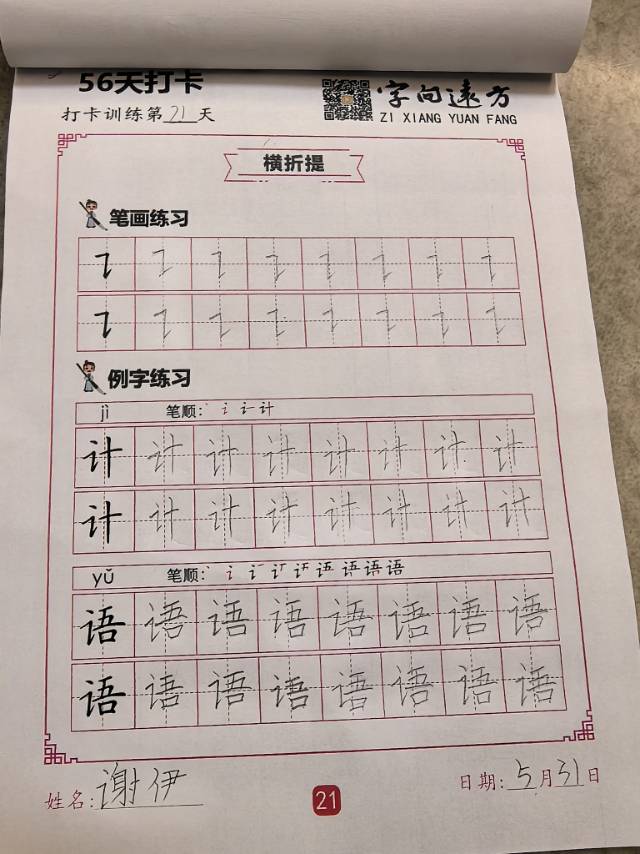 56天打卡
字向远方
打卡训练第21天
ZI XIANG YUAN FANG
横折提
笔画练习
例字练习
jì 笔顺: 计
计 计 计 计 计 计 计 计
计 计 计 计 计 计 计 计
yǔ 笔顺: 语
语 语 语 语 语 语 语 语
语 语 语 语 语 语 语 语
姓名: 谢伊
21
日期: 5月31日